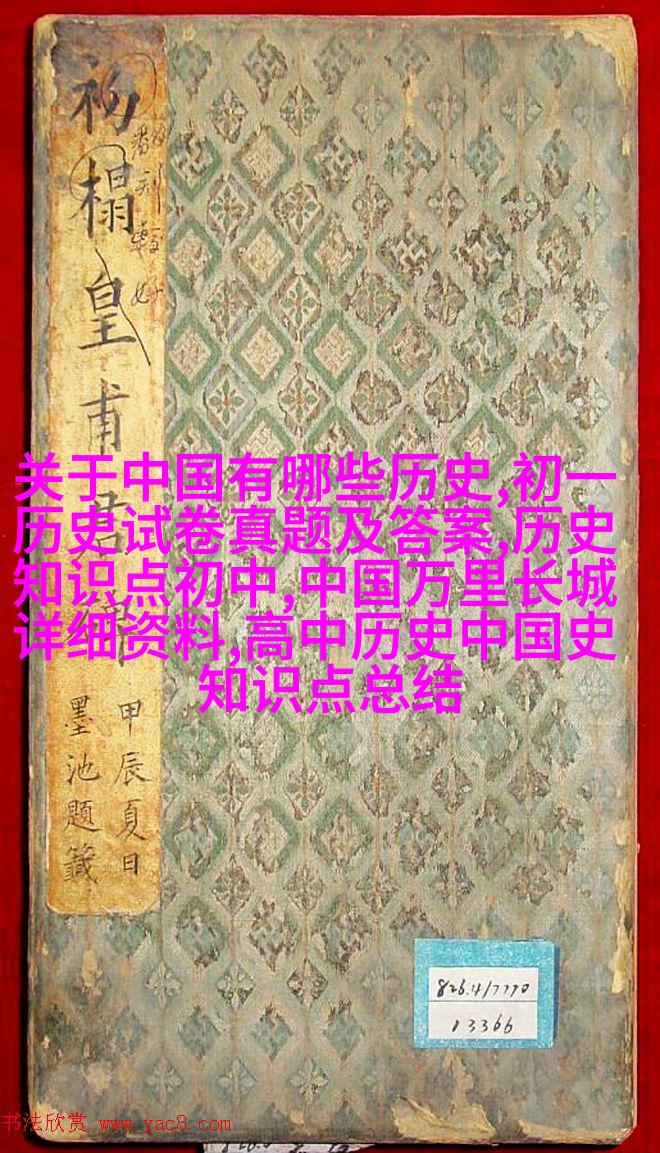 初榻皇甫君碑
甲辰夏日
墨池題籤
关于中国有哪些历史,初一
历史试卷真题及答案,历史
知识点初中,中国万里长城
详细资料,高中历史中国史
知识点总结
826.4/7770
13366
书法欣赏 www.yac8.com